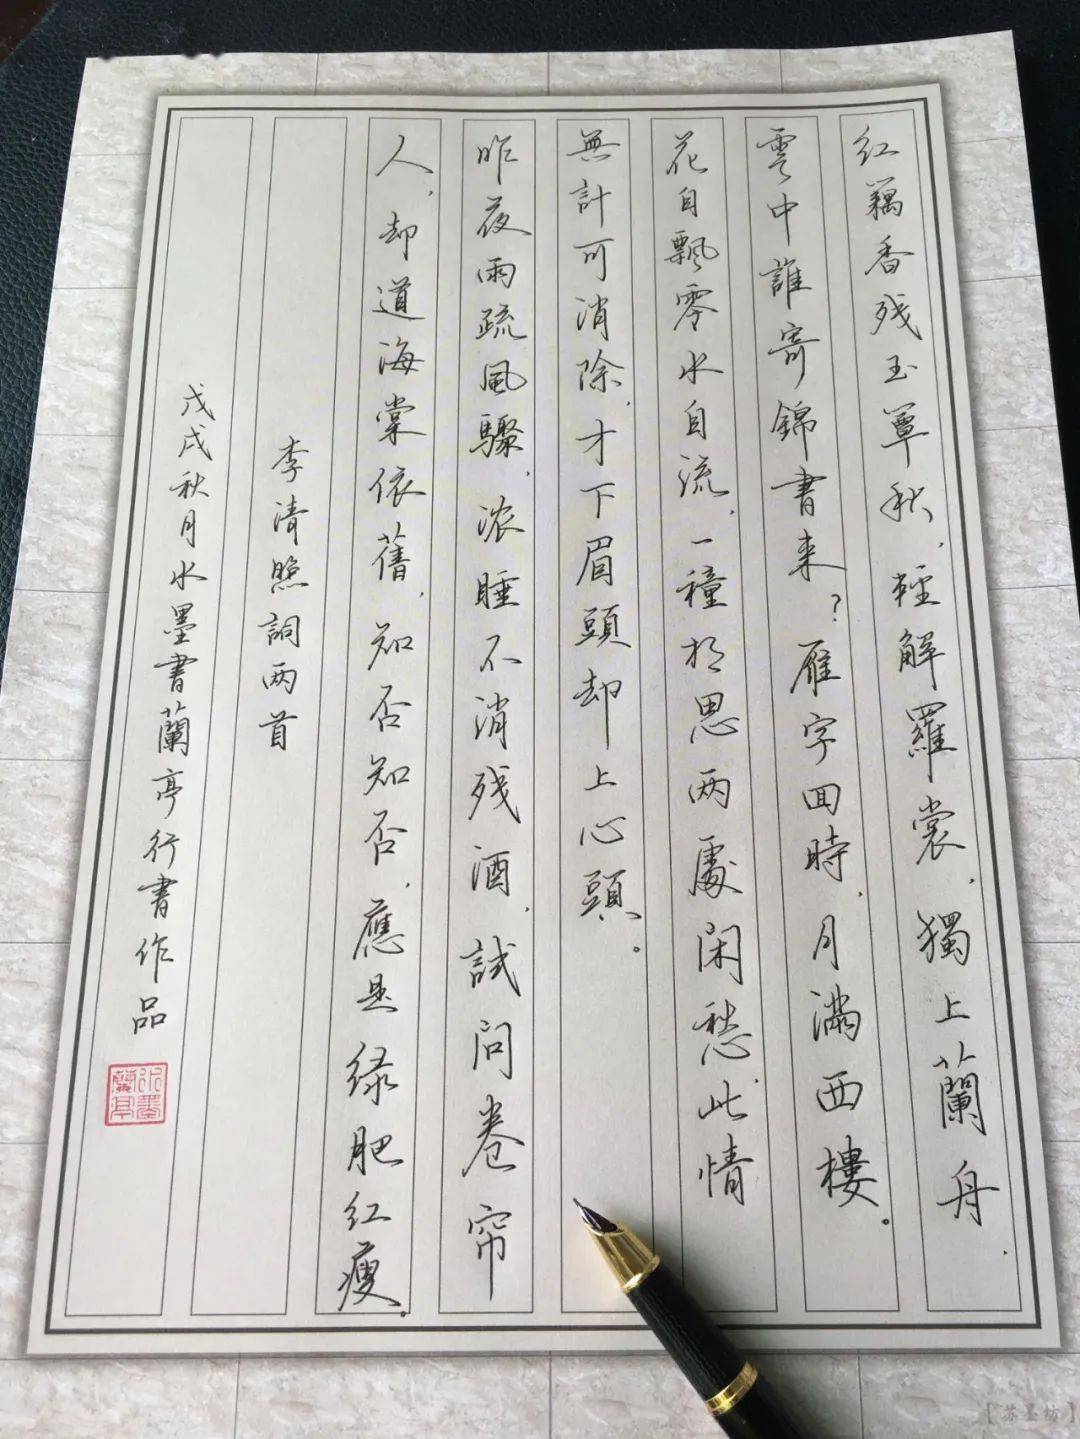 红藕香残玉簟秋,輕解羅裳,獨上蘭舟.
雲中誰寄錦書来?雁字回時,月滿西樓。
花自飄零水自流,一種相思两處闲愁.此情
無計可消除,才下眉頭却上心頭。
昨夜雨疏風驟,浓睡不消残酒,試问卷帘
人,却道海棠依舊,知否知否,應是绿肥红瘦。
李清照詞两首
戊戌秋月水墨書蘭亭行書作品
水墨蘭亭
【苏墨坊】